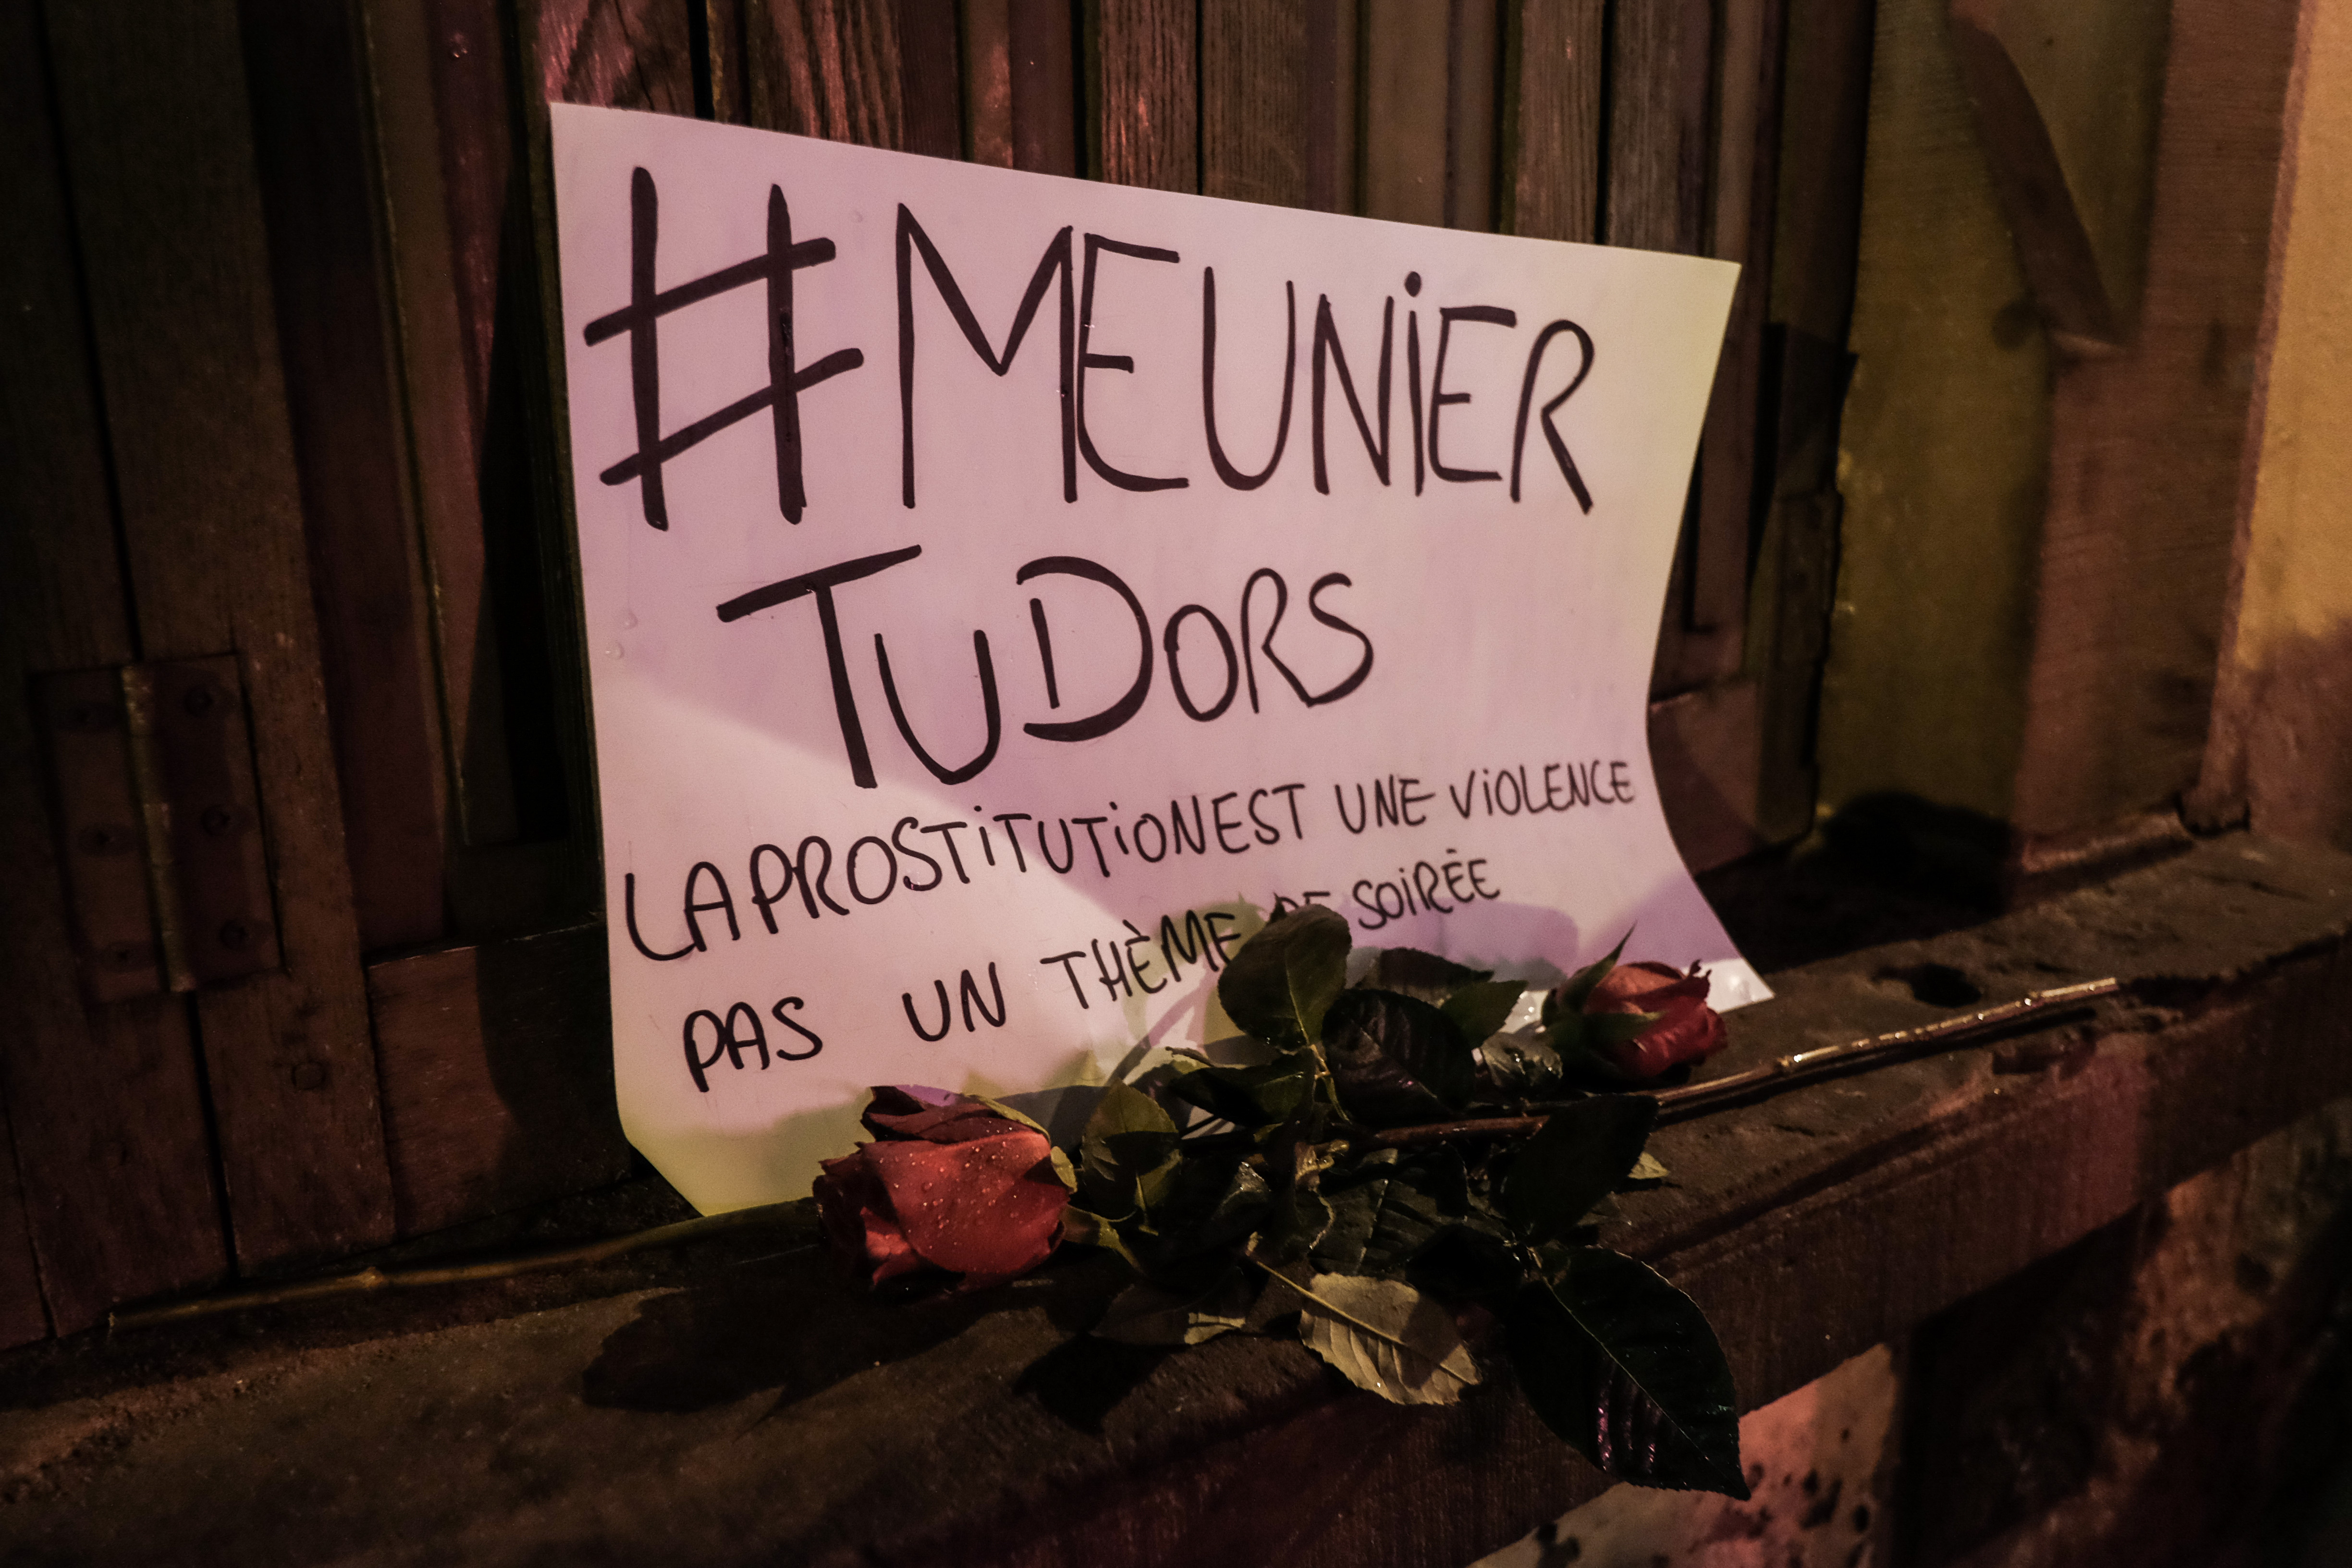 #MEUNIER
TU DORS
LA PROSTITUTION EST UNE VIOLENCE
PAS UN THÈME DE SOIRÉE